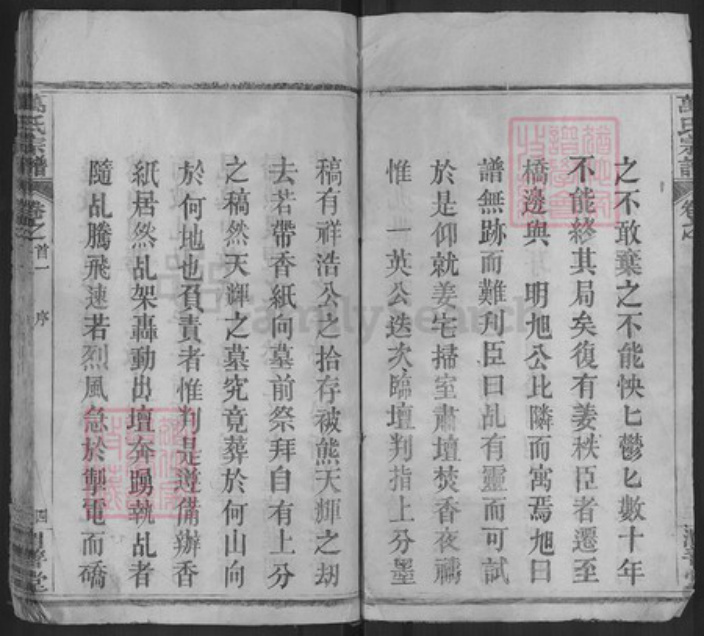 萬氏宗譜
卷之
之不敢棄之不能怏匕鬱匕數十年
不能終其局矣復有姜秩臣者遷至
橋邊與 明旭公比隣而寓焉旭曰
譜無跡而難刋臣曰乩有靈而可試
於是仰就姜宅掃室肅壇焚香夜禱
惟 一英公迭次臨壇判指上分墨
稿有祥浩公之拾存被熊天輝之刼
去若帶香紙向墓前祭拜自有上分
之稿然天輝之墓究竟葬於何山向
於何地也負責者惟判是遵備辦香
紙居然乩架轟動出壇奔踴執乩者
隨乩騰飛速若烈風急於掣電而矞
萬氏宗譜
卷之首一 序
四
FamilySearch